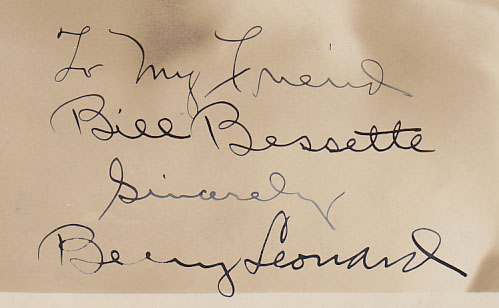 To My Friend
Bill Bessette
Sincerely
Benny Leonard